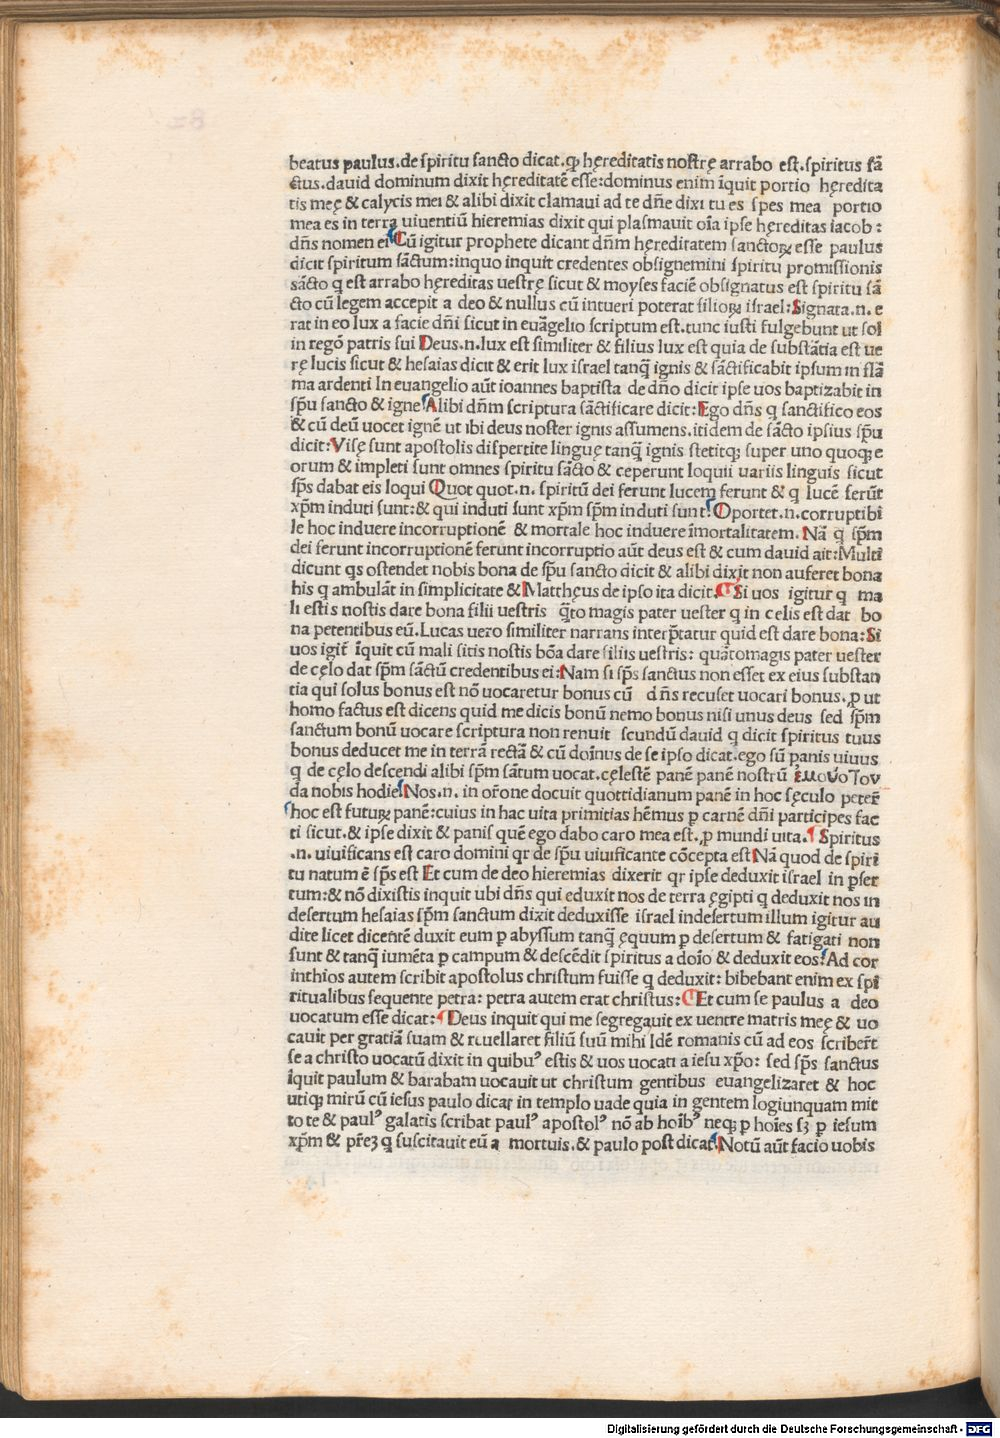 beatus paulus.de spiritu sancto dicat.ꝙ hęreditatis nostrę arrabo est.spiritus sã
ctus.dauid dominum dixit hęreditatẽ esse:dominus enim ĩquit portio hęredita
tis meę & calycis mei & alibi dixit clamaui ad te dñe dixi tu es spes mea portio
mea es in terra uiuentiũ hieremias dixit qui plasmauit oĩa ipse hęreditas iacob:
dñs nomen ei Cũ igitur prophete dicant dñm hęreditatem sanctoꝝ esse paulus
dicit spiritum sãctum:inquo inquit credentes obsignemini spiritu promissionis
sãcto q est arrabo hęreditas uestrę sicut & moyses faciẽ obsignatus est spiritu sã
cto cũ legem accepit a deo & nullus cũ intueri poterat filioꝝ israel:Signata.n.e
rat in eo lux a facie dñi sicut in euãgelio scriptum est.tunc iusti fulgebunt ut sol
in regõ patris sui Deus.n.lux est similiter & filius lux est quia de substãtia est ue
rę lucis sicut & hesaias dicit & erit lux israel tanq̃ ignis & sãctificabit ipsum in flã
ma ardenti In euangelio aũt ioannes baptista de dño dicit ipse uos baptizabit in
spũ sancto & igne Alibi dñm scriptura sãctificare dicit:Ego dñs q sanctifico eos
& cũ deũ uocet ignẽ ut ibi deus noster ignis assumens.itidem de sãcto ipsius spũ
dicit:Visę sunt apostolis dispertite linguę tanq̃ ignis stetitqꝫ super uno quoqꝫ e
orum & impleti sunt omnes spiritu sãcto & ceperunt loquii uariis linguis sicut
sp̃s dabat eis loqui Quot quot.n. spiritũ dei ferunt lucem ferunt & q lucẽ ferũt
xp̃m induti sunt:& qui induti sunt xp̃m sp̃m induti sunt Oportet.n.corruptibi
le hoc induere incorruptionẽ & mortale hoc induere ĩmortalitatem. Nã q sp̃m
dei ferunt incorruptionẽ ferunt incorruptio aũt deus est & cum dauid ait:Multi
dicunt qs ostendet nobis bona de spũ sancto dicit & alibi dixit non auferet bona
his q ambulãt in simplicitate & Matthęus de ipso ita dicit. Si uos igitur q ma
li estis nostis dare bona filii uestris q̃to magis pater uester q in celis est dat bo
na petentibus eũ.Lucas uero similiter narrans interp̃tatur quid est dare bona:Si
uos igit̃ ĩquit cũ mali sitis nostis bõa dare filiis uestris: quãtomagis pater uester
de cęlo dat sp̃m sãctũ credentibus ei:Nam si sp̃s sanctus non esset ex eius substan
tia qui solus bonus est nõ uocaretur bonus cũ dñs recuset uocari bonus.ꝓ ut
homo factus est dicens quid me dicis bonũ nemo bonus nisi unus deus sed sp̃m
sanctum bonũ uocare scriptura non renuit scundũ dauid q dicit spiritus tuus
bonus deducet me in terrã rectã & cũ doĩnus de se ipso dicat.ego sũ panis uiuus
q de cęlo descendi alibi sp̃m sãtum uocat.cęlestẽ panẽ panẽ nostrũ
da nobis hodie Nos.n. in orõne docuit quottidianum panẽ in hoc sęculo peter̃
hoc est futuꝝ panẽ:cuius in hac uita primitias hẽmus ꝑ carnẽ dñi participes fac
ti sicut.& ipse dixit & panis quẽ ego dabo caro mea est.ꝓ mundi uita. Spiritus
.n. uiuificans est caro domini qr de spũ uiuificante cõcepta est Nã quod de spiri
tu natum ẽ sp̃s est Et cum de deo hieremias dixerit qr ipse deduxit israel in ꝑser
tum:& nõ dixistis inquit ubi dñs qui eduxit nos de terra ęgipti q deduxit nos in
desertum hesaias sp̃m sanctum dixit deduxisse israel indesertum illum igitur au
dite licet dicentẽ duxit eum ꝑ abyssum tanq̃ ęquum ꝑ desertum & fatigati non
sunt & tanq̃ iumẽta ꝑ campum & descẽdit spiritus a doĩo & deduxit eos Ad cor
inthios autem scribit apostolus christum fuisse q deduxit: bibebant enim ex spi
ritualibus sequente petra: petra autem erat christus: Et cum se paulus a deo
uocatum esse dicat: Deus inquit qui me segregauit ex uentre matris meę & uo
cauit per gratiã suam & reuellaret filiũ suũ mihi Idẽ romanis cũ ad eos scriber̃t
se a christo uocatũ dixit in quibuꝰ estis & uos uocati a iesu xp̃o: sed sp̃s sanctus
ĩquit paulum & barabam uocauit ut christum gentibus euangelizaret & hoc
utiqꝫ mirũ cũ iesus paulo dicat in templo uade quia in gentem logiunquam mit
to te & paulꝰ galatis scribat paulꝰ apostolꝰ nõ ab hoĩbꝰ neqꝫ ꝑ hoĩes sꝫ ꝑ iesum
xp̃m & pr̃eꝫ q suscitauit eũ a mortuis.& paulo post dicat Notũ aũt facio uobis
Digitalisierung gefördert durch die Deutsche Forschungsgemeinschaft - DFG